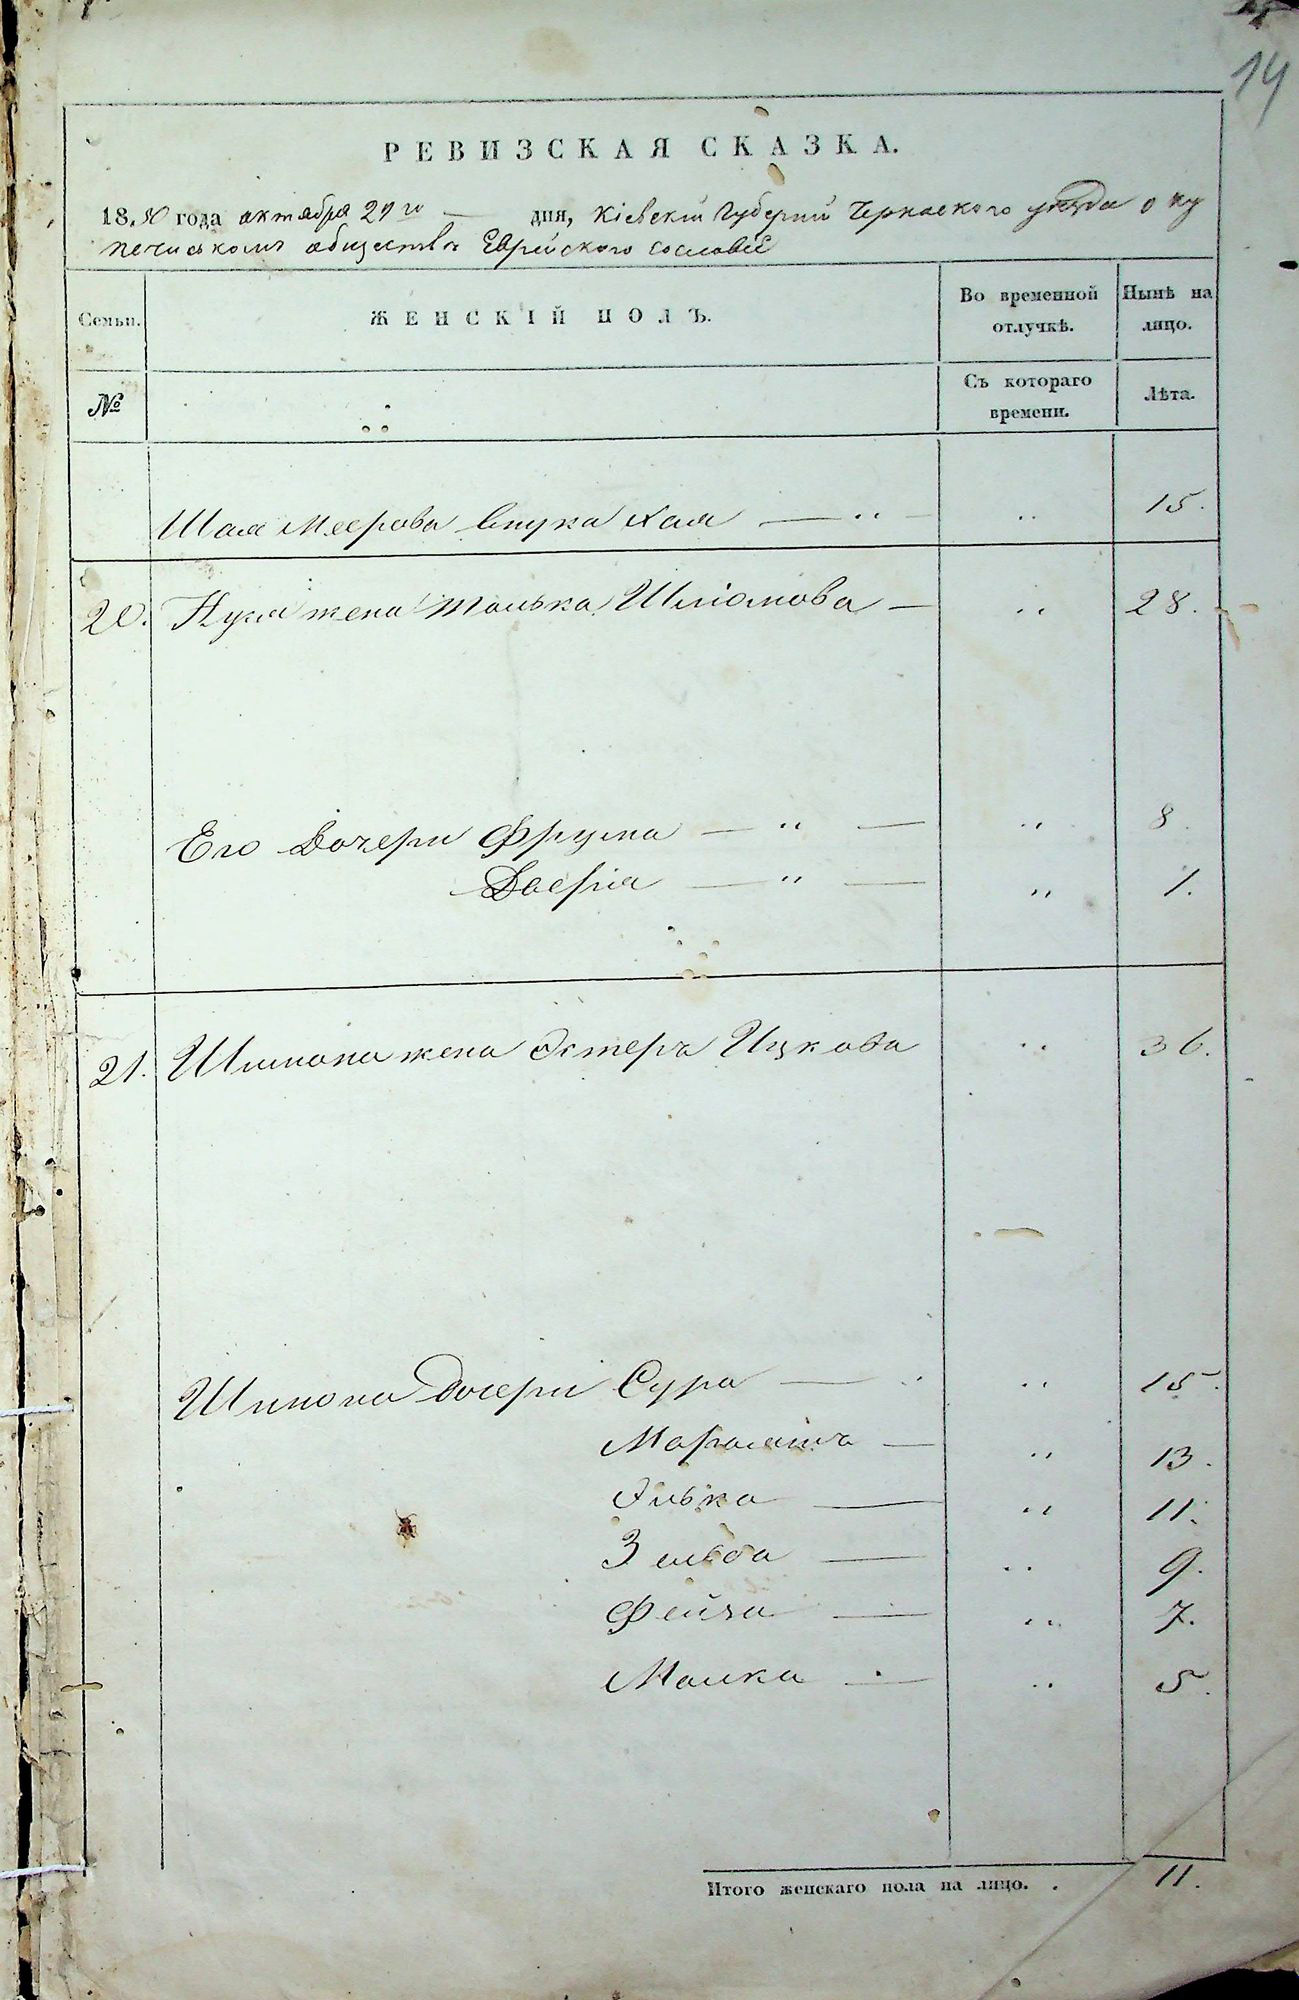 14
РЕВИЗСКАЯ СКАЗКА.
18.50 года октября 29го — дня, Кіевскій Губерніи Черкаского уезда о ку
печиськомъ обществѣ Еврейского сословіе
Семьи. ЖЕНСКІЙ ПОЛЪ. Во временной отлучкѣ. Нынѣ на лицо.
№ Съ котораго времени. Лѣта.
Меерова внука Хая — 〃 — 〃 15.
20. жена Шліомова — 〃 28.
Его Дочери Фрума — 〃 — 〃 8.
— 〃 — 〃 1.
21. Шимона жена Эстеръ Ицкова 〃 36.
Шимона дочери Сура — 〃 〃 15.
— 〃 13.
Элька — 〃 11.
Зельда — 〃 9.
Фейга — 〃 7.
Малка — 〃 5.
Итого женскаго пола на лицо. . 11.